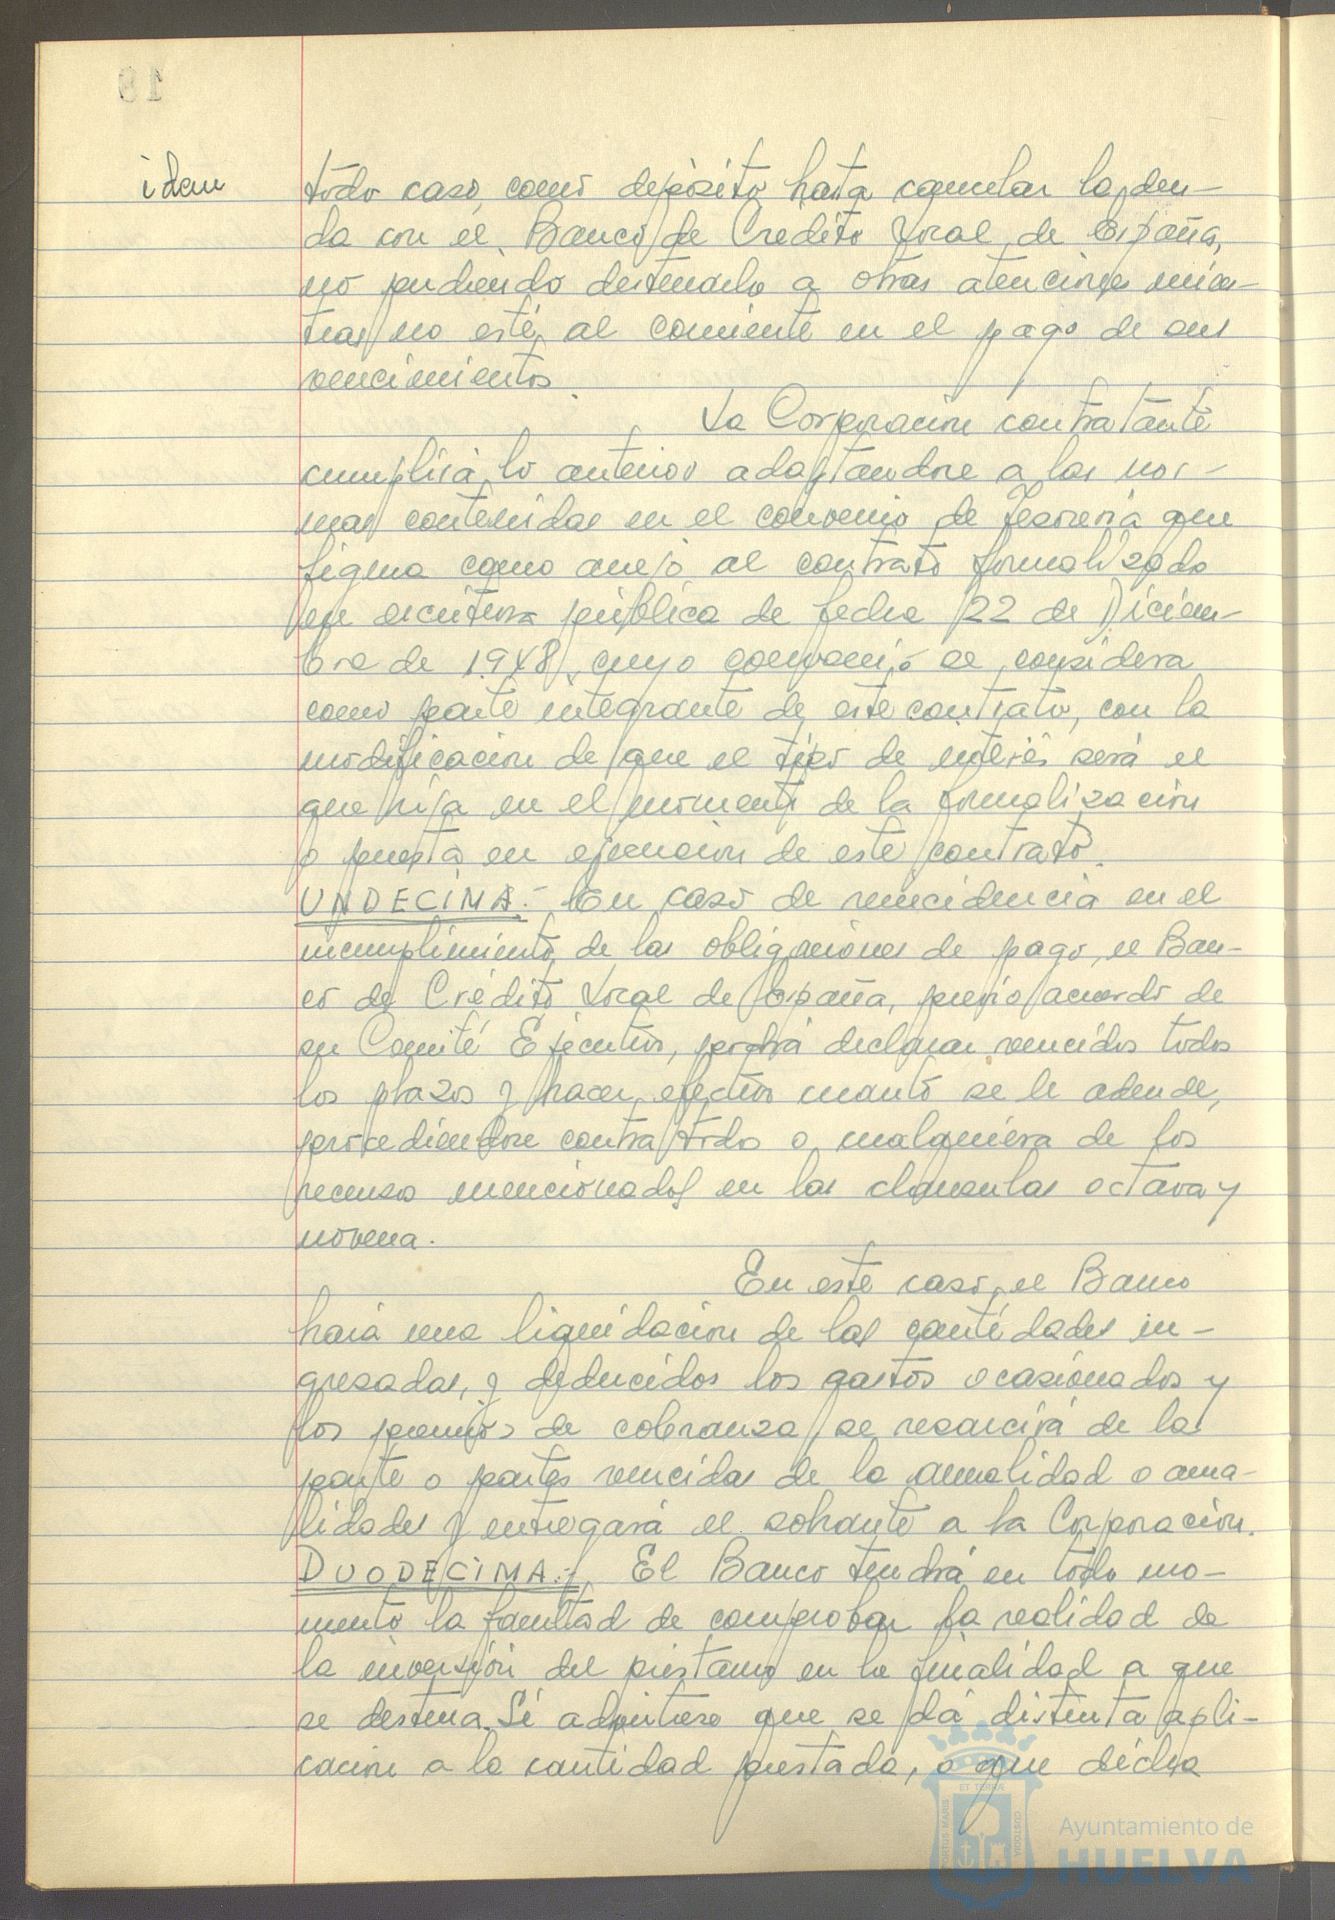 idem
todo caso, como depósito hasta cancelar la deu-
da con el Banco de Crédito Local de España,
no pudiendo destinarlo a otras atenciones mien-
tras no esté al corriente en el pago de sus
vencimientos.
La Corporación contratante
cumplirá lo anterior adaptandose a las nor-
mas contenidas en el convenio de Tesorería que
figura como anejo al contrato formalizado
en escritura pública de fecha 22 de Diciem-
bre de 1.948, cuyo convenio se considera
como parte integrante de este contrato, con la
modificación de que el tipo de interés será el
que rija en el momento de la formalización
o puesta en ejecución de este contrato.
UNDECIMA.- En caso de reincidencia en el
incumplimiento de las obligaciones de pago, el Ban-
co de Crédito Local de España, previo acuerdo de
su Comité Ejecutivo, podrá declarar vencidos todos
los plazos y hacer efectivo cuanto se le adeude,
procediendose contra todos o cualquiera de los
recursos mencionados en las clausulas octava y
novena.
En este caso, el Banco
hará una liquidación de las cantidades in-
gresadas, y deducidos los gastos ocasionados y
los premios de cobranza se resarcirá de la
parte o partes vencidas de la anualidad o anua-
lidades y entregará el sobrante a la Corporación.
DUODECIMA.- El Banco tendrá en todo mo-
mento la facultad de comprobar la realidad de
la inversión del préstamo en la finalidad a que
se destina. Si advirtiese que se dá distinta apli-
cación a la cantidad prestada, o que dicha
PORTUS MARIS
ET TERRÆ
CUSTODIA
Ayuntamiento de
HUELVA
18